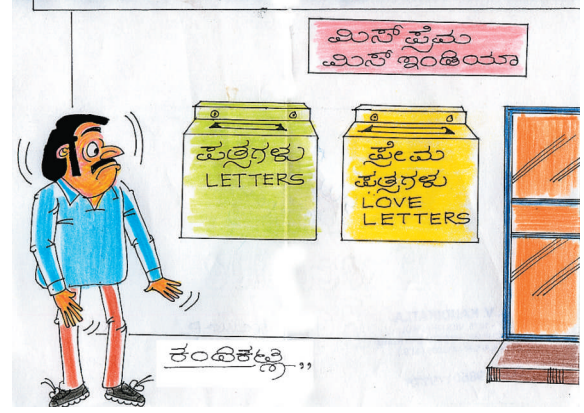 ಮಿಸ್ ಪ್ರೇಮ
ಮಿಸ್ ಇಂಡಿಯಾ
ಪತ್ರಗಳು
LETTERS
ಪ್ರೇಮ
ಪತ್ರಗಳು
LOVE
LETTERS